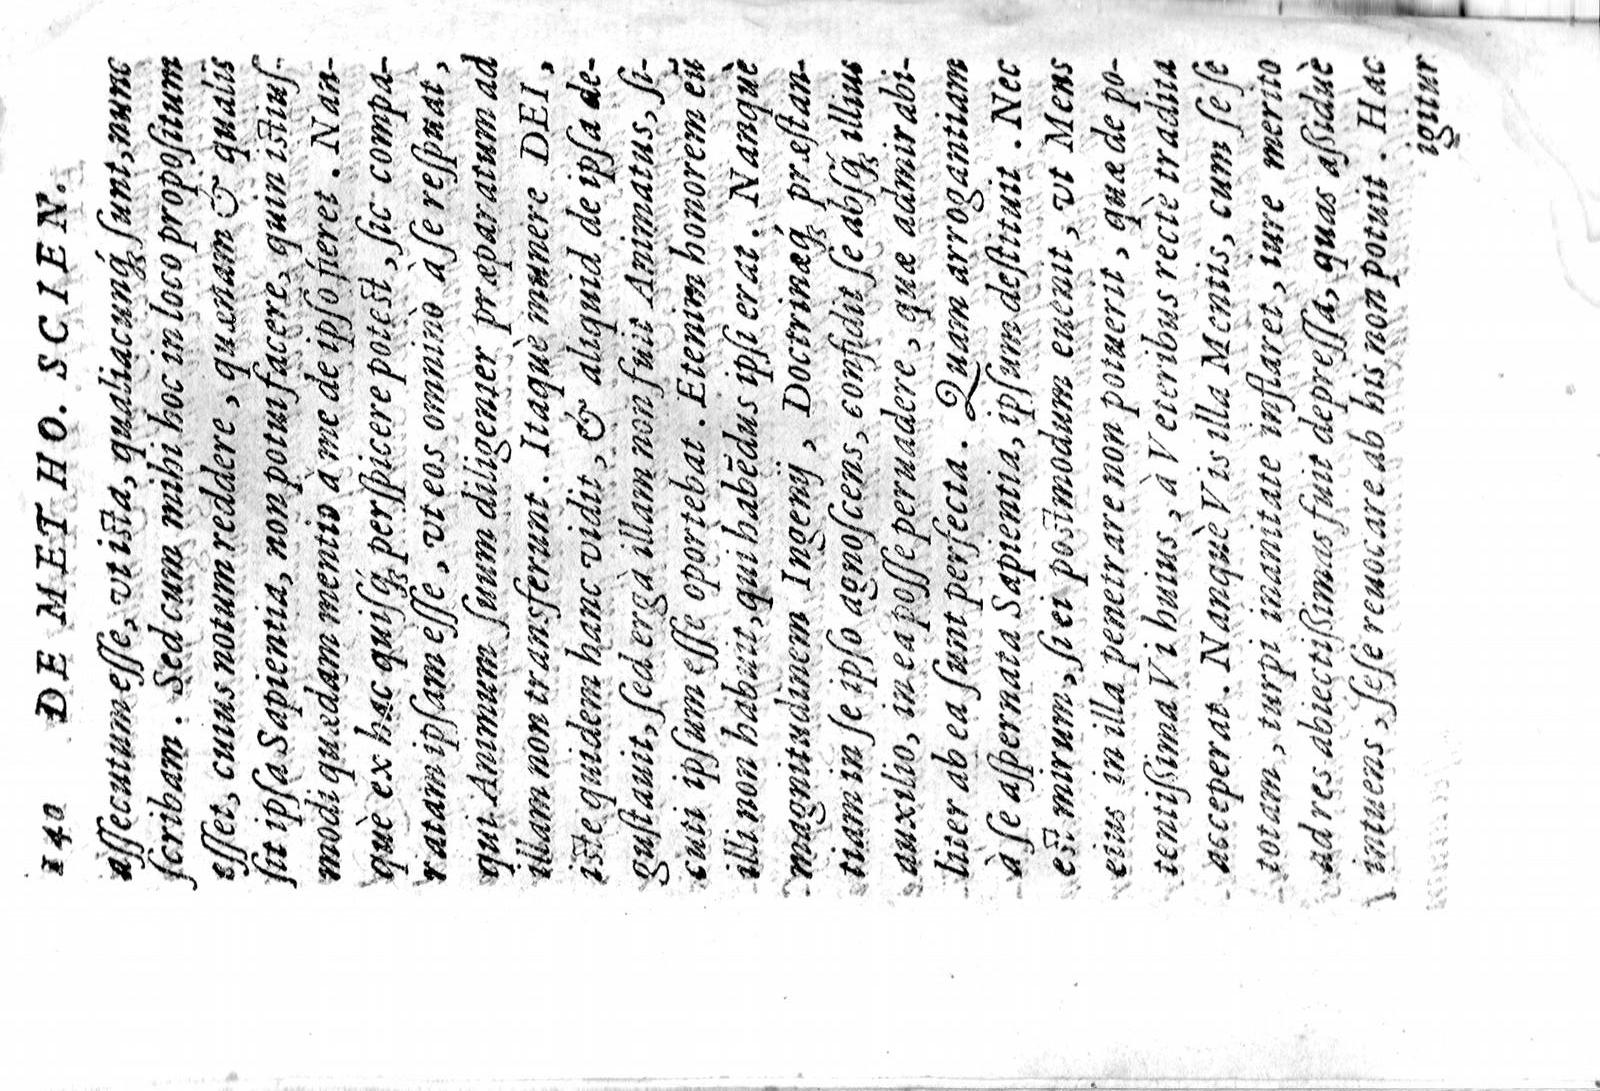 140 DE METHO. SCIEN.
aſſecutum eſſe, vt iſta, qualiacunq́; ſunt, nunc
ſcribam. Sed cum mihi hoc in loco propoſitum
eſſet, cuius notum reddere, quænam & qualis
ſit ipſa Sapientia, non potui facere, quin iſtiuſ-
modi quædam mentio à me de ipſo fieret. Nan-
què ex hac quiſq́; perſpicere poteſt, ſic compa-
ratam ipſam eſſe, vt eos omninò à ſe reſpuat,
qui Animum ſuum diligenter præparatum ad
illam non transferunt. Itaquè munere DEI,
iſte quidem hanc vidit, & aliquid de ipſa de-
guſtauit, ſed ergà illam non fuit Animatus, ſi-
cuti ipſum eſſe oportebat. Etenim honorem eũ
illi non habuit, qui habẽdus ipſi erat. Nanquè
magnitudinem Ingenij, Doctrinæq́; præſtan-
tiam in ſe ipſo agnoſcens, confidit ſe abſq́; illius
auxilio, in ea poſſe peruadere, quæ admirabi-
liter ab ea ſunt perfecta. Quam arrogantiam
à ſe aſpernata Sapientia, ipſum deſtituit. Nec
eſt mirum, ſi ei poſtmodum euenit, vt Mens
eius in illa penetrare non potuerit, quæ de po-
tentiſsima Vi huius, à Veteribus rectè tradita
acceperat. Nanquè Vis illa Mentis, cum ſeſe
totam, turpi inanitate inflaret, iure merito
ad res abiectiſsimas fuit depreſſa, quas aſsiduè
intuens, ſeſe reuocare ab his non potuit. Hac
igitur